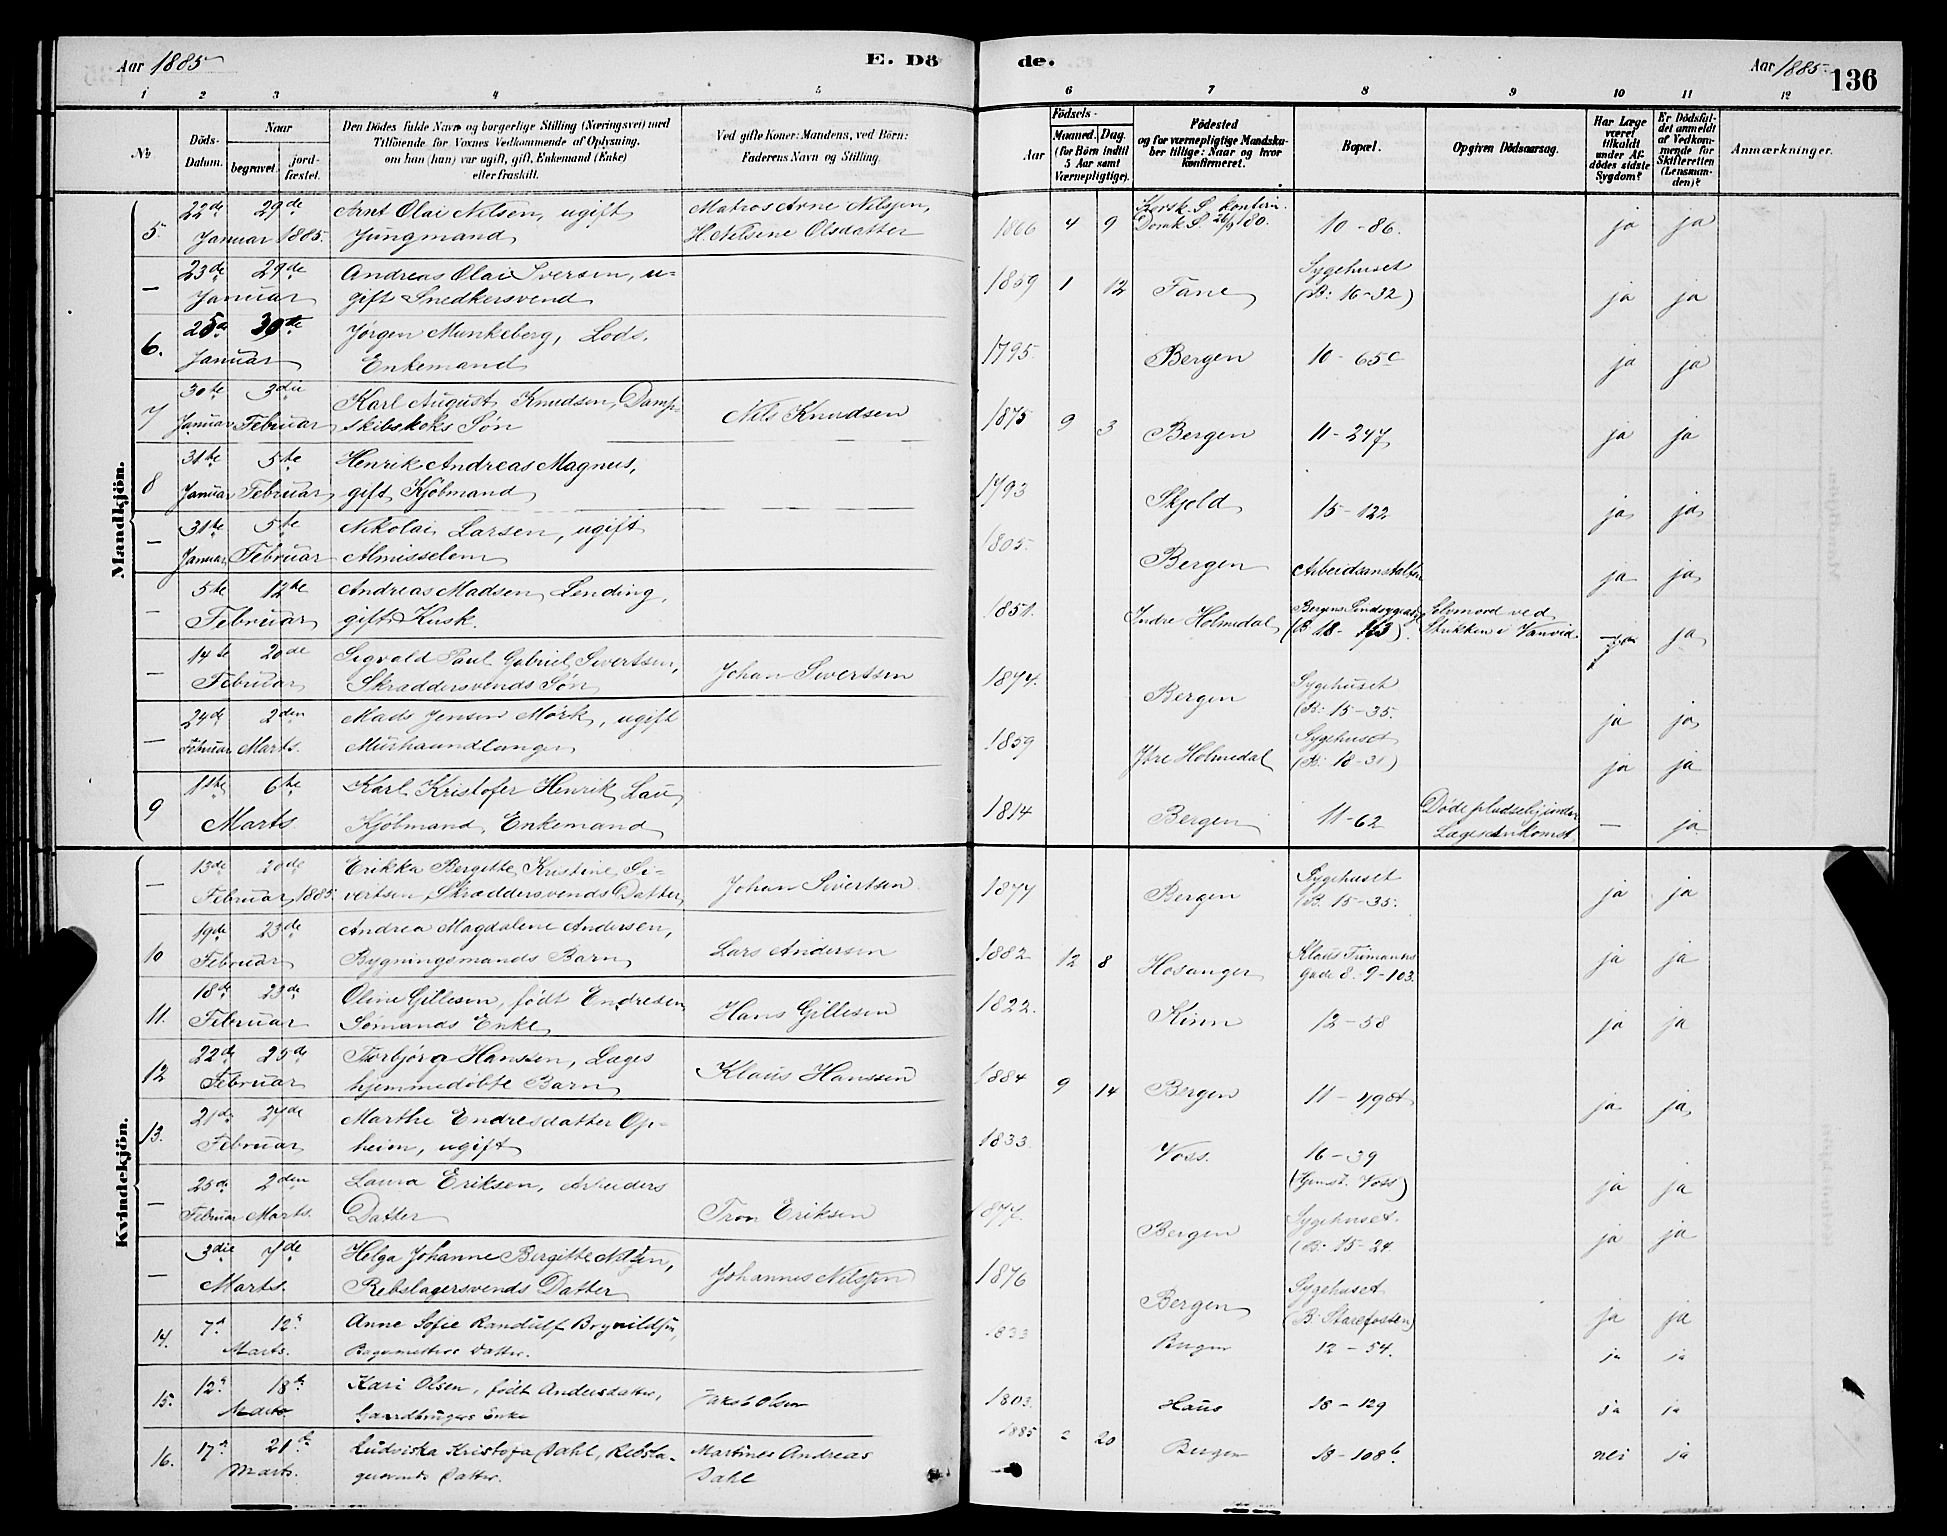 Aar 1885
E. Dö
de.
Aar 1885
136
1 2 3 4 5 6 7 8 9 10 11 12
No
Döds-Datum.
Naar
begravet.
jord-fæstet.
Den Dödes fulde Navn og borgerlige Stilling (Næringsvei) med
Tilföiende for Voxnes Vedkommende af Oplysning,
om han (hun) var ugift, gift, Enkemand (Enke)
eller fraskilt.
Ved gifte Koner: Mandens, ved Börn:
Faderens Navn og Stilling.
Födsels-
Aar
Maaned. Dag.
(for Börn indtil
5 Aar samt
Værnepligtige).
Födested
og for værnepligtige Mandska-
ber tillige: Naar og hvor
konfirmeret.
Bopæl.
Opgiven Dödsaarsag.
Har Læge
været
tilkaldt
under Af-
dödes sidste
Sygdom?
Er Dödsfal-
det anmeldt
af Vedkom-
mende for
Skifteretten
(Lensman-
den)?
Anmærkninger.
Mandkjön.
5. 22de 29de Arnt Olai Nilsen, ugift Matros Arne Nilssen, 1866 4 9 Korsk. S. konfirm. 10-86. ja ja
Januar 1885. Jungmand H. Nilsine Olsdatter Domk. S. 80.
— 23de 29de Andreas Olai Iversen, u- 1859 1 12 Fane Sygehuset ja ja
Januar gift Snedkersvend (B: 16-32)
6. 25de 30te Jørgen Munkeberg, Lods, 1795. Bergen 10-65c ja ja
Januar Enkemand
7 30te 3die Karl August Knudsen, Damp- Nils Knudsen 1875 9 3 Bergen 11-247 ja ja
Januar Februar skibskoks Søn
8 31te 5te Henrik Andreas Magnus, 1793 Skjold 15-122 ja ja
Januar Februar gift, Kjøbmand
— 31te 5te Nikolai Larsen, ugift 1805. Bergen Arbeidsanstalten ja ja
Januar Februar Almisselem
— 5te 12te Andreas Madsen Lending, 1851. Indre Holmedal Bergens Sindsygeasyl Selvmord ved ja ja
Februar gift Kusk. (B. 18-113). Strikken i Vanvid.
— 14de 20de Sigvald Paul Gabriel Sivertsen, Johan Sivertsen 1874. Bergen Sygehuset ja ja
Februar Skraddersvends Søn (B: 15-35.
— 24de 2den Mads Jensen Mørk, ugift 1859 Ytre Holmedal Sygehuset ja ja
Februar Marts. Murhaandlanger (B: 18-31)
9 1ste 6te Karl Kristofer Henrik Lau, 1814 Bergen 11-62 Døde pludselig inden — ja
Marts. Kjøbmand, Enkemand Lægens Ankomst.
Kvindekjön.
— 13de 20de Erikka Bergitte Kristine Si- Johan Sivertsen 1877 Bergen Sygehuset ja ja
Februar 1885. vertsen, Skræddersvends Datter (B: 15-35.
10 19de 23de Andrea Magdalene Andersen, Lars Andersen 1882 12 8 Hosanger Klaus ja ja
Februar Bygningsmands Barn gade 8. 9-103.
11. 18de 23de Oline Gillesen, født Endresen Hans Gillesen 1822. Kinn 12-58 ja ja
Februar Sømands Enke
12 22de 25de Torbjørg Hanssen, Læges Klaus Hanssen 1884 9 14 Bergen 11-49 ja ja
Februar hjemmedøbte Barn
13. 21de 27de Marthe Endresdatter Op- 1833 Voss. 16-39 ja ja
Februar heim, ugift (Hjemst. Voss)
— 25de 2den Laura Eriksen, Arbeiders Tron Eriksen 1877. Bergen Sygehuset. ja ja
Februar Marts. Datter (B: 15-24.
— 3die 7de Helga Johanne Bergitte Nilssen, Johannes Nilssen 1876 Bergen Sygehuset ja ja
Marts. Rebslagersvends Datter (B: Starefossen)
14. 7de 12te Anne Sofie Randulf Brynildsen, 1833 Bergen 12-54. ja ja
Marts. Bagermesters Datter.
15. 12te 18de Kari Olsen, født Andersdatter, Jakob Olsen 1803. Haus 18-129 ja ja
Marts Gaardbrugers Enke
16. 17de 21de Ludviska Kristofa Dahl, Rebsla- Martines Andreas 1885 2 20 Bergen 18-108b. nei ja
Marts. gersvends Datter. Dahl